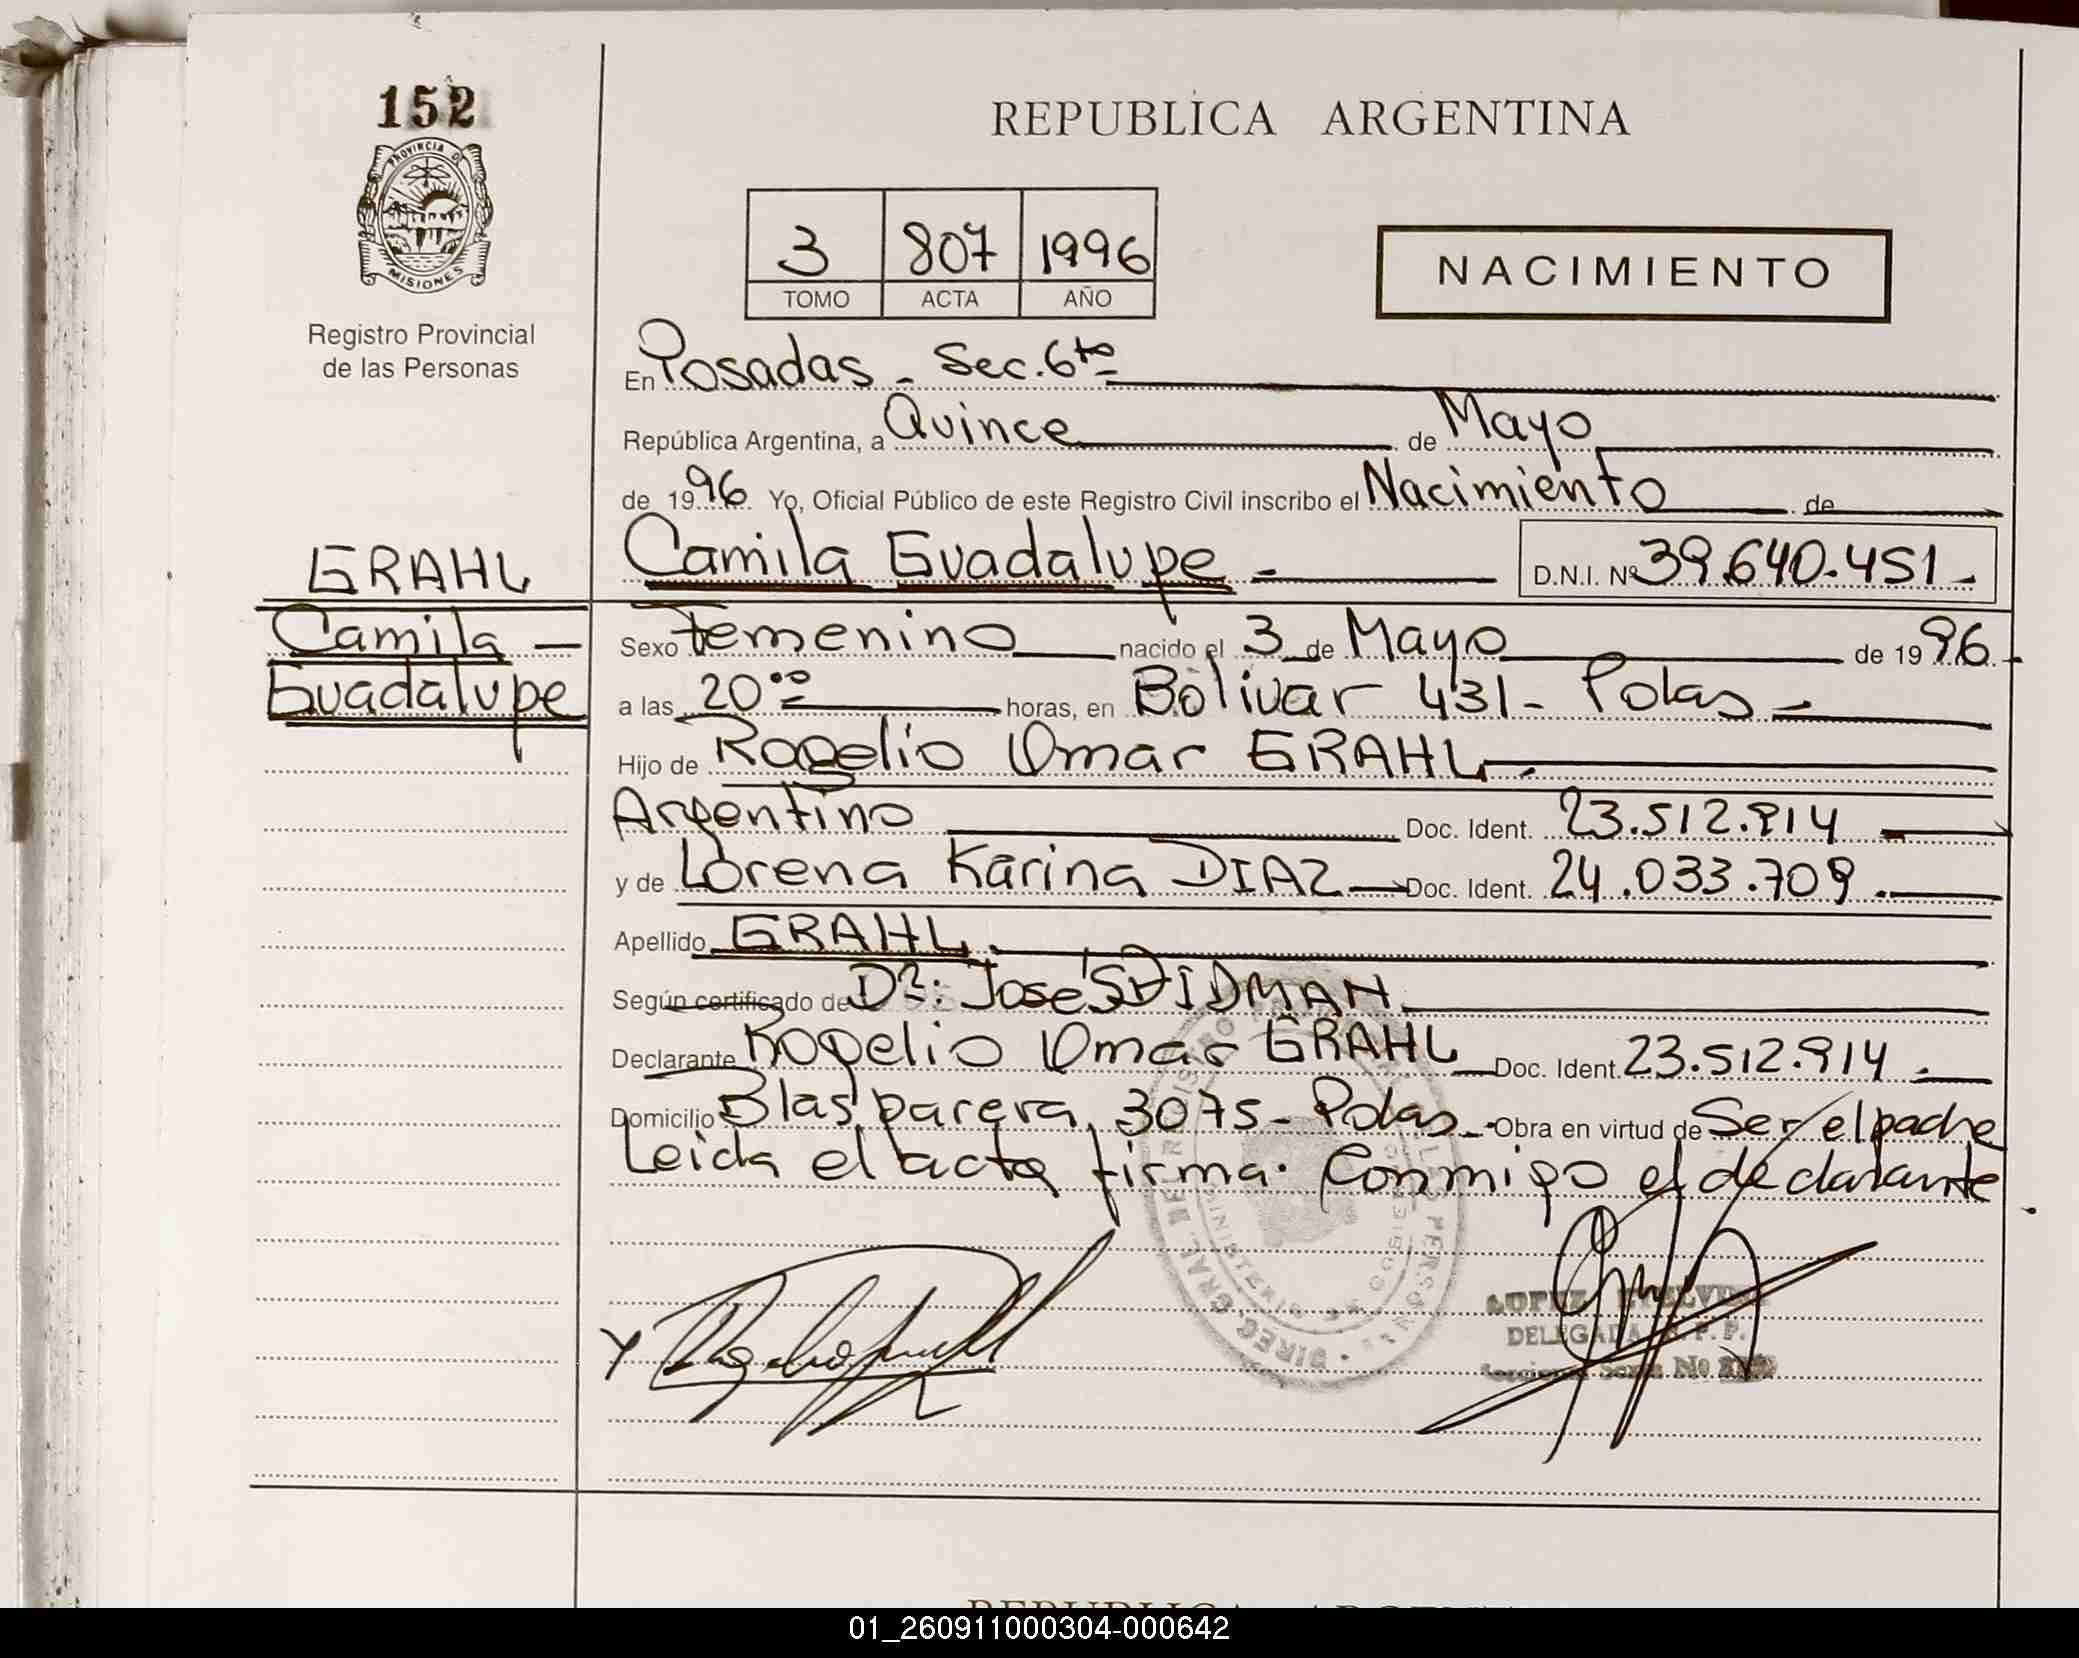 152
PROVINCIA D
MISIONES
Registro Provincial
de las Personas
REPUBLICA ARGENTINA
3 807 1996
TOMO ACTA AÑO
NACIMIENTO
En Posadas - Sec. 6ta
República Argentina, a Quince de Mayo
de 1996 Yo, Oficial Público de este Registro Civil inscribo el Nacimiento de
Camila Guadalupe - D.N.I. Nº 39.640.451-
GRAHL
Camila -
Guadalupe
Sexo Femenino nacido el 3 de Mayo de 1996
a las 20:00 horas, en Bolivar 431 - Pdas -
Hijo de Rogelio Omar GRAHL
Argentino Doc. Ident. 23.512.914
y de Lorena Karina DIAZ Doc. Ident. 24.033.709
Apellido GRAHL
Según certificado de Dr: José SAIDMAN
Declarante Rogelio Omar GRAHL Doc. Ident. 23.512.914
Domicilio Blas parera 3075 - Pdas - Obra en virtud de Ser el padre
Leida el acta firma conmigo el declarante
LOPEZ
DELEGADA R.P.P.
REPUBLICA ARGENTINA
01_260911000304-000642